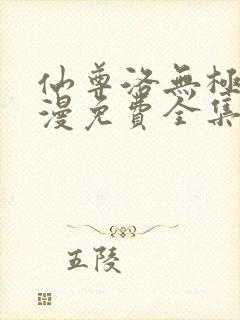 仙尊洛無極
漫免費全集
五陵